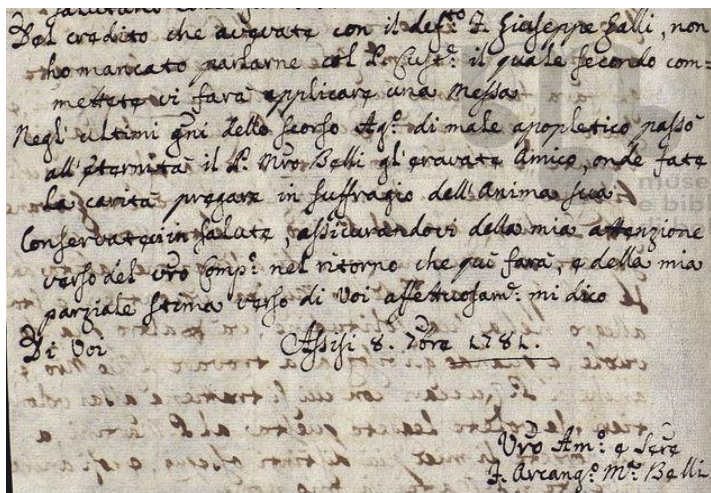 Del credito che avevate con il defto F. Giuseppe Galli, non
ho mancato parlarne col P. Cust.e il quale secondo com=
mettete vi farà applicare una Messa
Negl'ultimi gni dello scorso Ag.o di male apopletico passò
all'eternità il P. Mro Belli gl'eravate Amico, onde fate
la carità pregare in suffragio dell'Anima sua
Conservatevi in salute, assicurandovi della mia attenzione
verso del vro Comp.o nel ritorno che quì farà, e della mia
parziale stima verso di Voi affettuosam.e mi dico
Di Voi Assisi 8. 7bre 1781.
Vro Am.o e Serre
F. Arcang.o M.a Belli